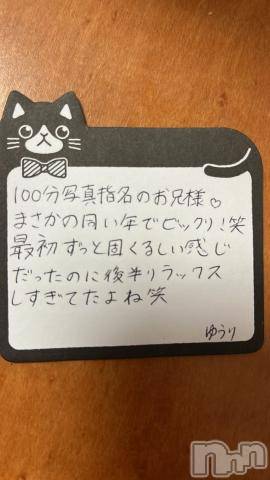 100分写真指名のお兄様♡
まさかの同い年でビックリ！笑
最初ずっと固くるしい感じ
だったのに後半リラックス
しすぎてたよね笑
ゆうり
nnn